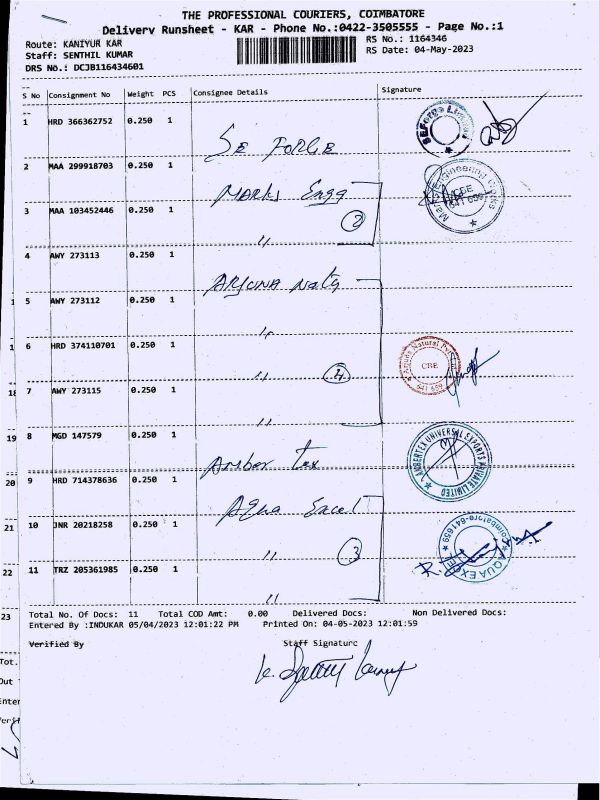 THE PROFESSIONAL COURIERS, COIMBATORE
Delivery Runsheet - KAR - Phone No.:0422-3505555 - Page No.:1
Route: KANIYUR KAR RS No.: 1164346
Staff: SENTHIL KUMAR RS Date: 04-May-2023
DRS No.: DCJB116434601
S No Consignment No Weight PCS Consignee Details Signature
1 HRD 366362752 0.250 1 SE FORGE
2 MAA 299918703 0.250 1 Marks Engg
3 MAA 103452446 0.250 1 " 2
4 AWY 273113 0.250 1 Arjuna Natq
5 AWY 273112 0.250 1 "
6 HRD 374110701 0.250 1 " 4
7 AWY 273115 0.250 1 "
8 MGD 147579 0.250 1 Amber tex
9 HRD 714378636 0.250 1 Aqua Excel
10 JNR 20218258 0.250 1 " 3
11 TRZ 205361985 0.250 1 "
SEForge Limited
Engineering Works
CBE
641 659
Natural Pvt
CBE
641 659
AMBERTEX UNIVERSAL EXPORTS PRIVATE LIMITED
AQUA EXCEL
Coimbatore-641659
Total No. Of Docs: 11 Total COD Amt: 0.00 Delivered Docs: Non Delivered Docs:
Entered By :INDUKAR 05/04/2023 12:01:22 PM Printed On: 04-05-2023 12:01:59
Verified By Staff Signature
18
19
20
21
22
23
Tot.
Out
Enter
Verif